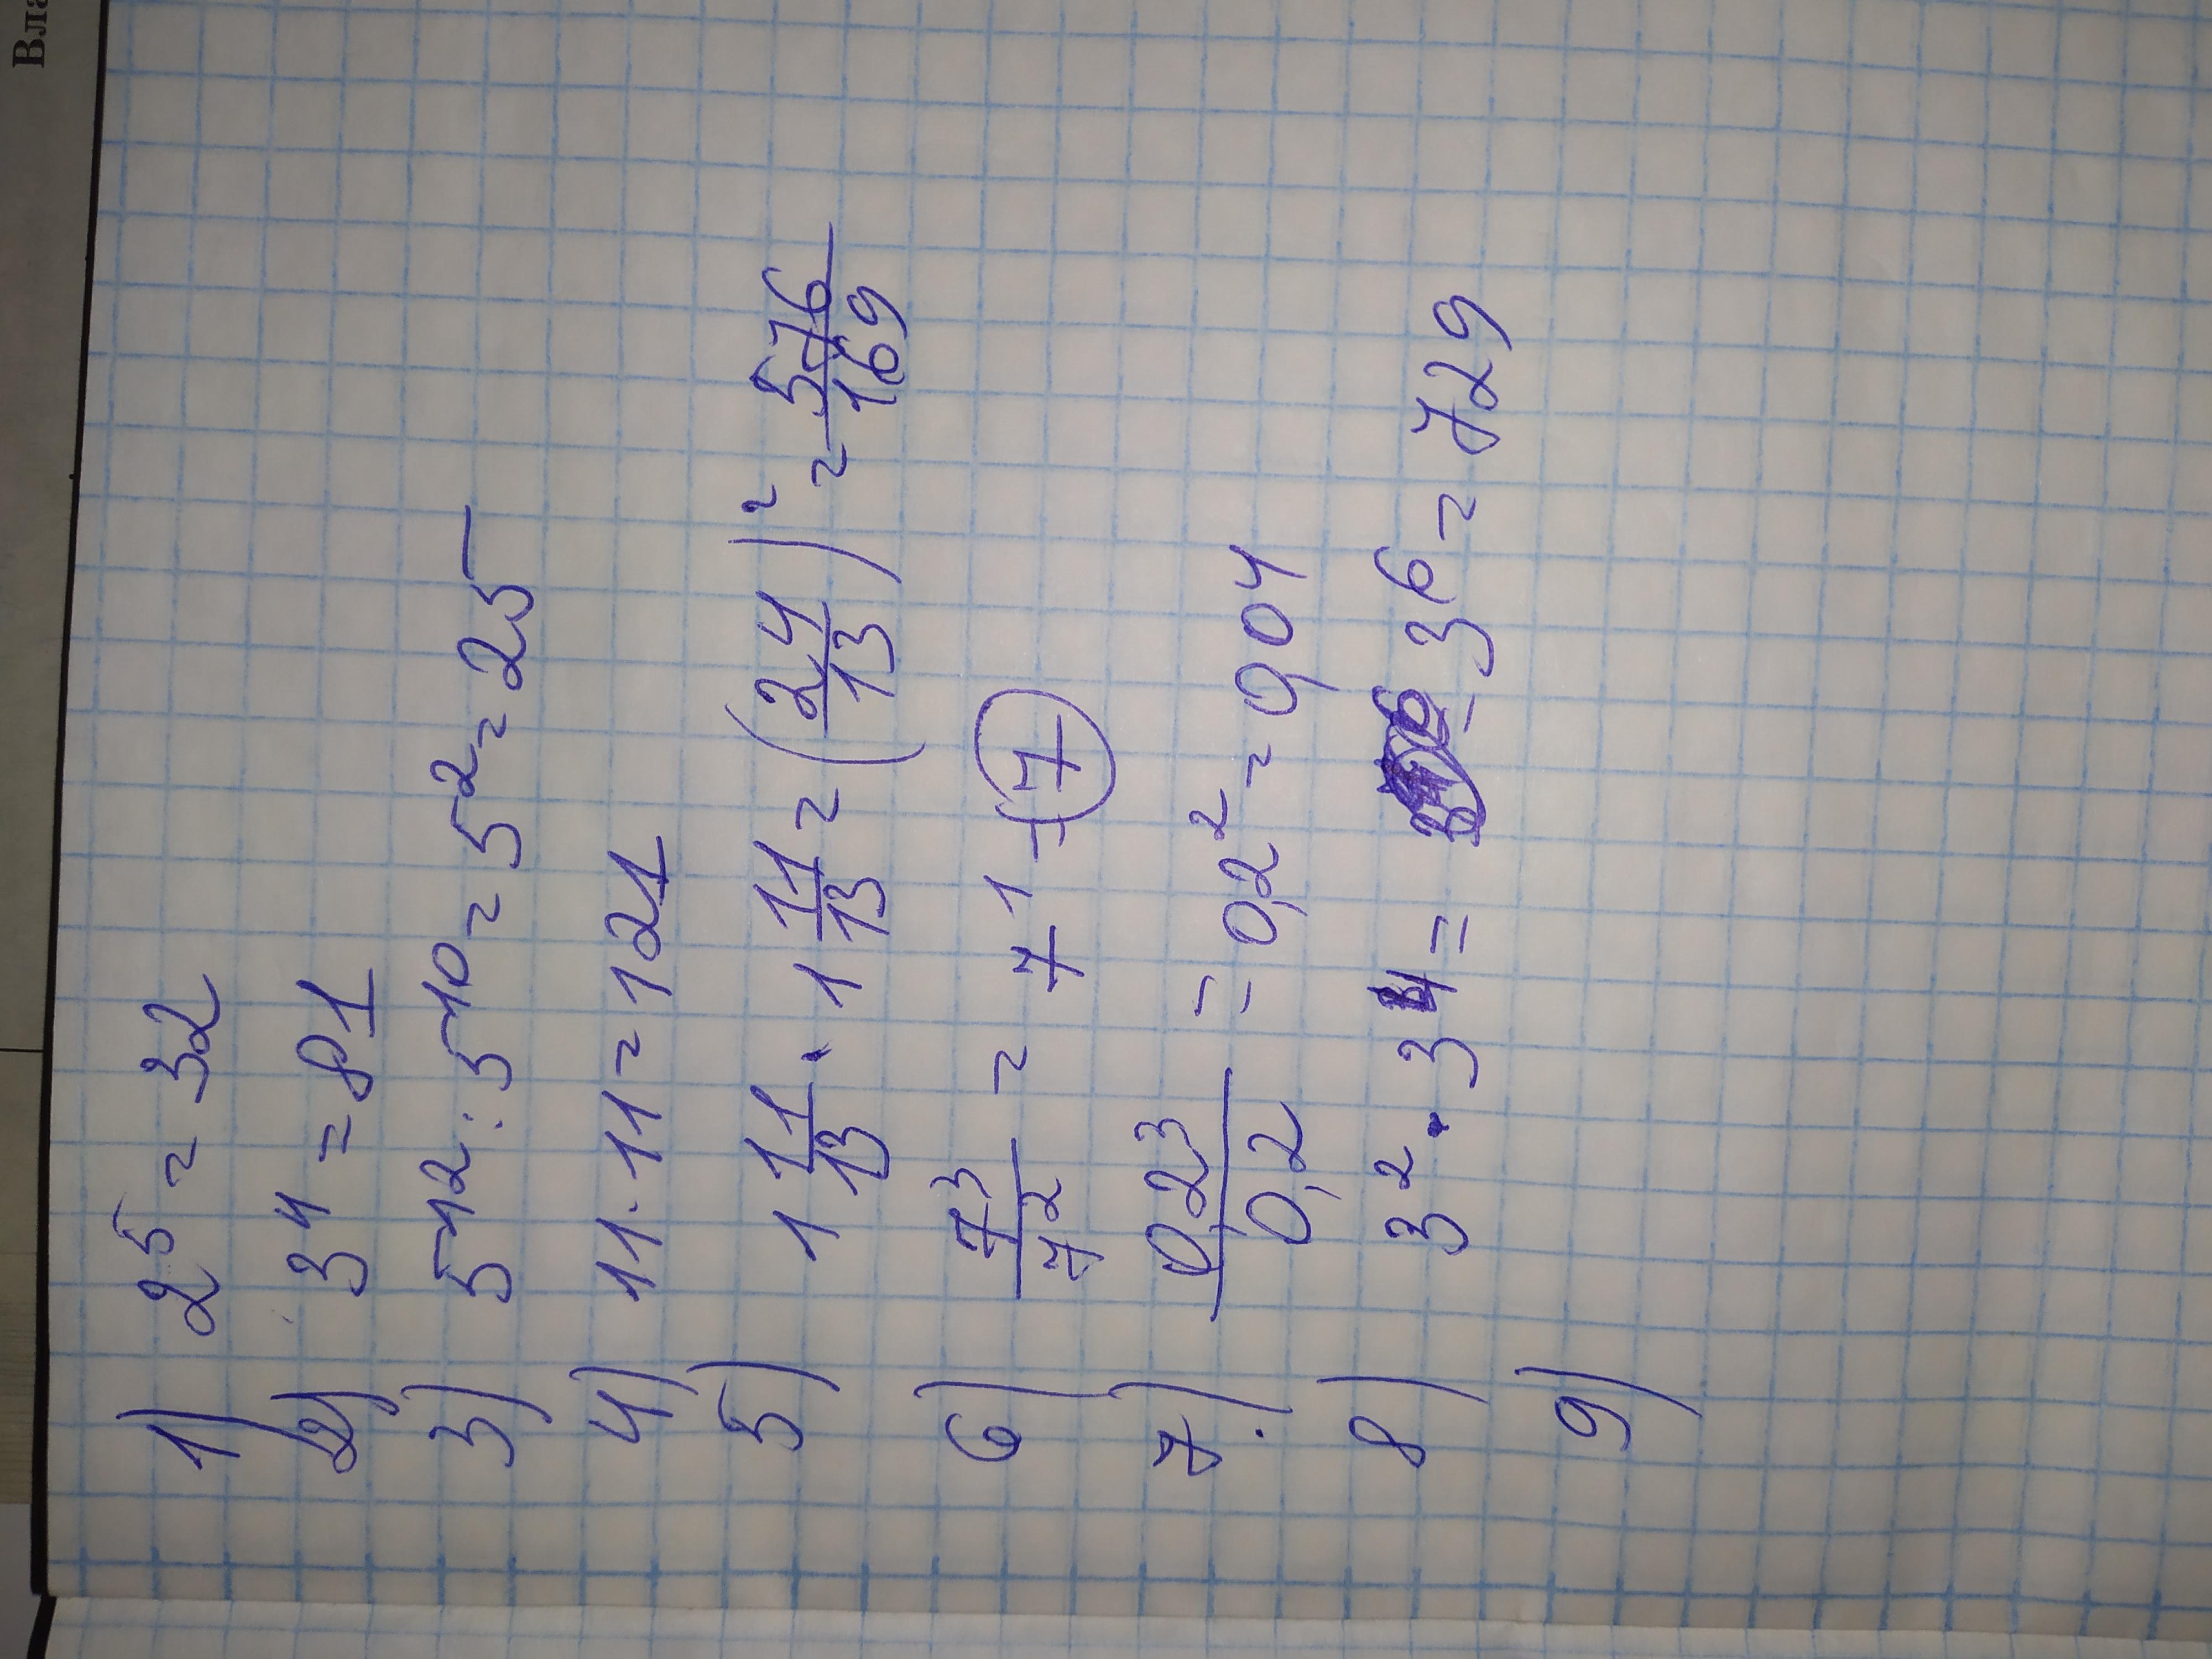 Вла
1) 2⁵ = 32
2) 3⁴ = 81
3) 5¹² : 5¹⁰ = 5² = 25
4) 11 · 11 = 121
5) 1 11/13 · 1 11/13 = (24/13)² = 576/169
6) 7³/7² = 7¹ = 7
7.) 0,2³/0,2 = 0,2² = 0,04
8) 3² · 3⁴ = = 3⁶ = 729
9)